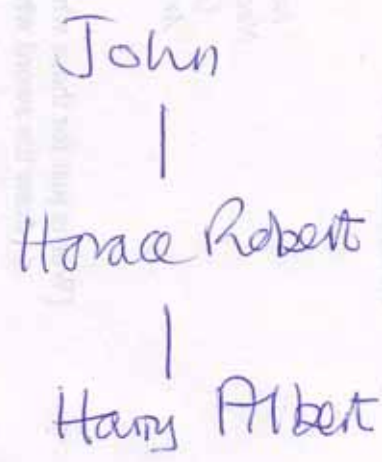 John
Horace Robert
Harry Albert